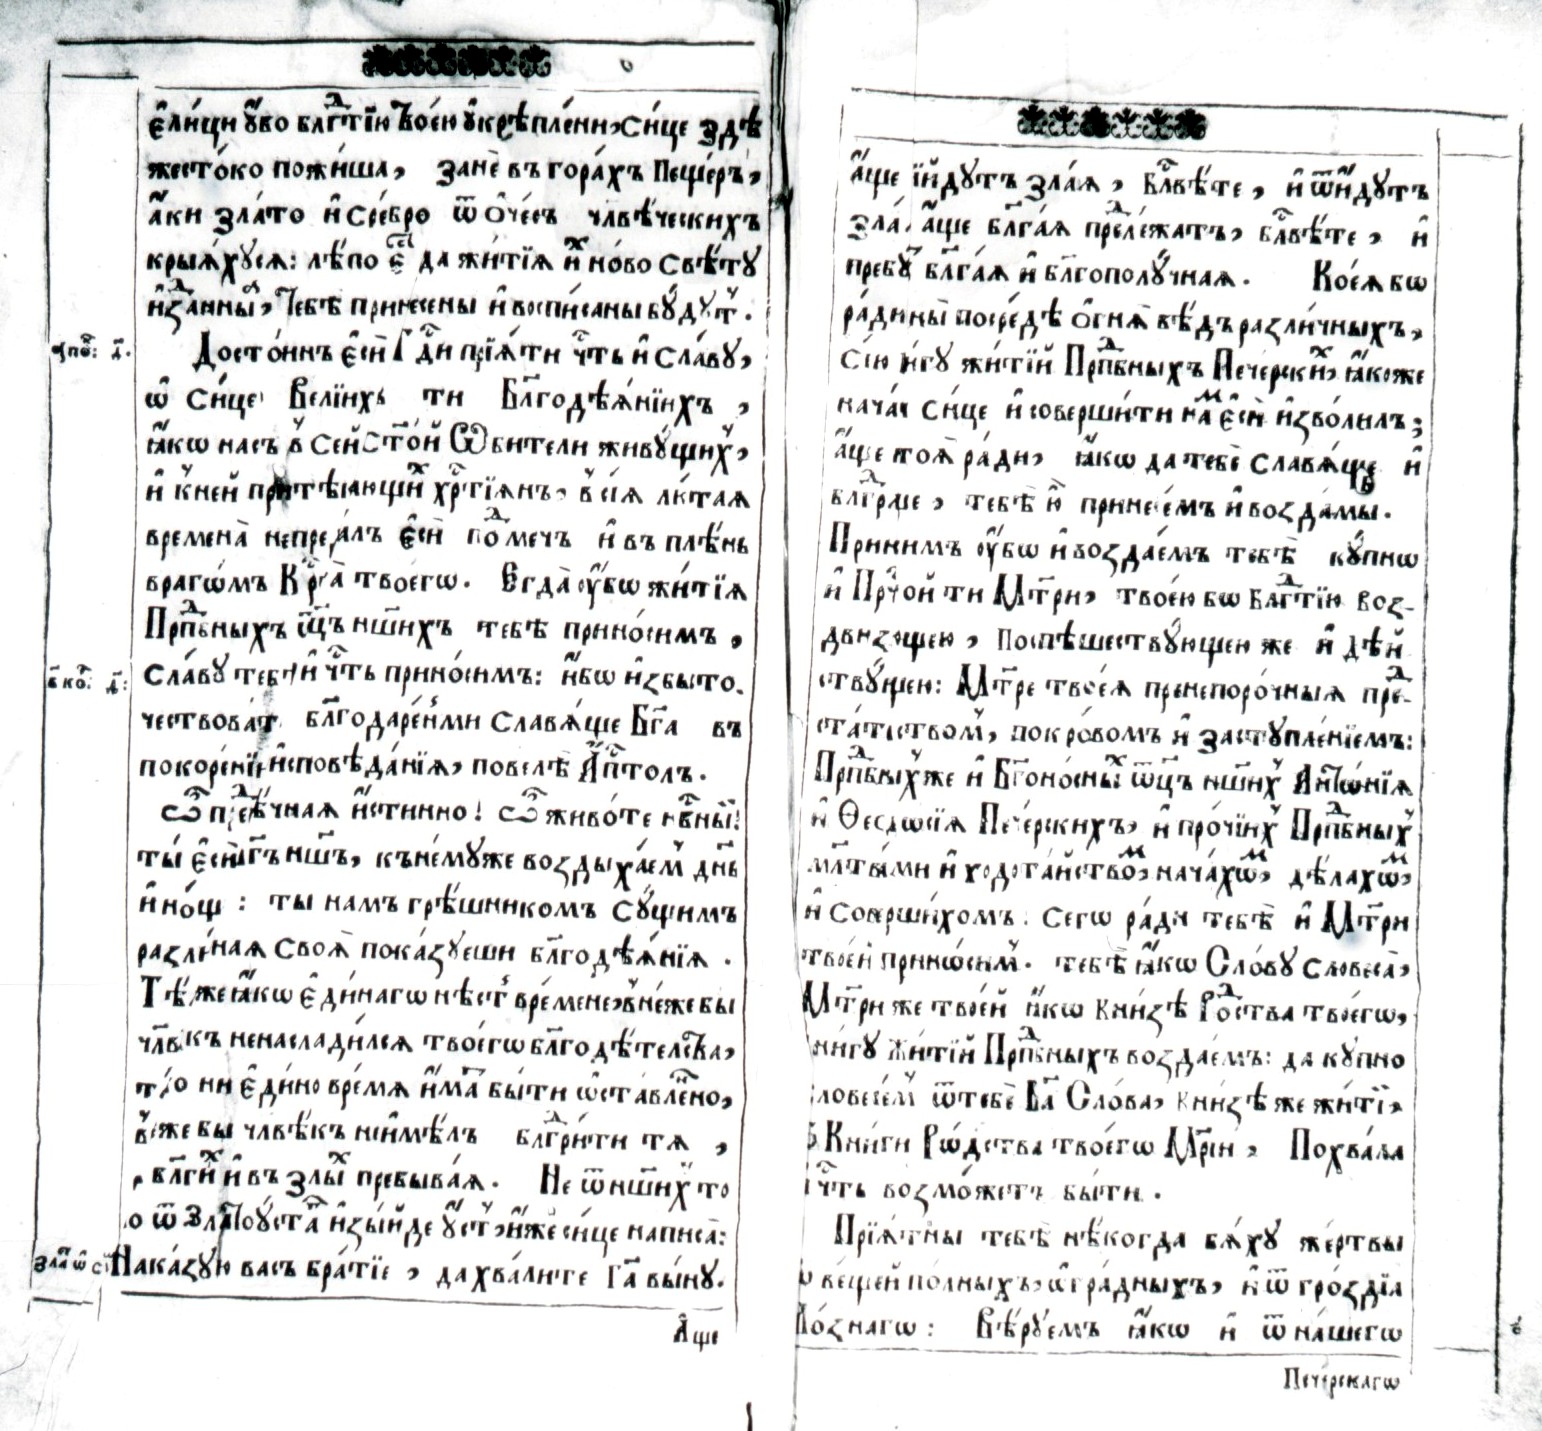 є҆ли́цы ᲂу҆́бо бл҃гⷣтїю Твое́ю ᲂу҆крѣпле́ни, си́це здѣ̀
жесто́ко пожи́ша, занѐ въ гора́хъ Пеще́ръ,
а҆́ки зла́то и҆ сребро̀ ѿ о҆че́съ чл҃вѣ́ческихъ
крыѧ́хусѧ: лѣ́по є҆́сть да жи́тїѧ и҆́хъ но́во свѣ́ту
и҆зⷣанныѧ, Тебѣ̀ принесены̀ и҆ воспи́саны бу́дутъ.
а҆поⷦ҇: д҃.
Досто́инъ є҆сѝ Гдⷭ҇и прїѧ́ти чⷭ҇ть и҆ сла́ву,
ѡ҆ си́це Вели́ихъ ти Бл҃годѣѧ́нїихъ,
ꙗ҆́кѡ насъ в̾ сей Ст҃о́й Ѻ҆би́тели живу́щихъ,
и҆ к̾ ней притѣка́ющихъ хрⷭ҇тїѧ́нъ, в̾ сїѧ̀ лю́таѧ
времена̀ не преда́лъ є҆сѝ под̾ ме́чъ и҆ въ плѣ́нъ
врагѡ́мъ Крⷭ҇та̀ твоегѡ̀. Є҆гда̀ ᲂу҆́бѡ жи́тїѧ
Прпⷣбныхъ ѿц҃ъ нш҃ихъ тебѣ̀ прино́симъ,
в҃ коⷬ҇: д҃:
сла́ву тебѣ̀ и҆ чⷭ҇ть прино́симъ: и҆́бѡ и҆збыто-
чествова́ти бл҃годаре́ньми славѧ́ще Бг҃а въ
покоре́нїи и҆сповѣ́данїѧ, повелѣ̀ А҆пⷭ҇толъ.
Ѽ пре́вѣ́чнаѧ и҆́стинно! Ѽ живо́те нбⷭ҇ный!
ты̀ є҆сѝ Бг҃ъ нш҃ъ, къ нему́же воздыха́емъ дн҃ь
и҆ но́щ: ты̀ намъ грѣ́шникомъ су́щимъ
разли́чнаѧ своѧ̀ пока́зуеши бл҃годѣѧ́нїѧ.
Тѣ́мже ꙗ҆́кѡ є҆ди́нагѡ нѣ́сть вре́мене, в̾ не́же бы
чл҃вѣ́къ не наслади́лсѧ твоегѡ̀ бл҃годѣ́телства,
то ни є҆ди́но вре́мѧ и҆́мать бы́ти ѡ҆ставле́нно,
в̾ не́же бы чл҃вѣ́къ не и҆мѣ́лъ бл҃гⷣри́ти тѧ̀,
в̾ бл҃ги́хъ и҆ въ злы́хъ пребыва́ѧ. Не ѿ нш҃ихъ то
но ѿ Златоуста́гѡ и҆зы́йде ᲂу҆́стъ, и҆́же си́це написа̀:
Злаⷮ҇ ѡ҆ сⷭ҇
Наказу́ю васъ бра́тїе, да хва́лите Гдⷭ҇а вы́ну.
А҆́ще
а҆́ще прїи́дутъ зла́ѧ, блⷭ҇ви́те, и҆ ѿи́дутъ
зла́ѧ, а҆́ще бл҃га́ѧ предлежа́тъ, блⷭ҇ви́те, и҆
пребу́дутъ бл҃га́ѧ и҆ бл҃гополу́чнаѧ. Коеѧ́ бѡ
ра́ди ны̀ посредѣ̀ ѻ҆гнѧ̀ бѣ́дъ разли́чныхъ,
сїю̀ кни́гу жи́тїй Прпⷣбныхъ Пече́рскихъ, ꙗ҆́коже
нача́ти си́це и҆ соверши́ти на́мъ є҆сѝ и҆зво́лилъ;
а҆́ще не тоѧ̀ ра́ди, ꙗ҆́кѡ да тебѐ славѧ́ще и҆
бл҃гⷣрѧще, тебѣ̀ ю҆̀ принесе́мъ и҆ возда́мы.
Прино́симъ ᲂу҆́бѡ и҆ воздае́мъ тебѣ̀ ку́пнѡ
и҆ Прⷭ҇той ти Мт҃ри, твое́ю бѡ бл҃гⷣтїю воз-
дви́зающею, Поспѣшеству́ющею же и҆ дѣй-
ству́ющею: Мт҃ре твоеѧ̀ пренепоро́чныѧ пре́д-
ста́телствомъ, покро́вомъ и҆ заступле́нїемъ:
Прпⷣбныхъ же и҆ Бг҃оно́сныхъ ѿц҃ъ нш҃ихъ А҆нтѡ́нїѧ
и҆ Ѳеодо́сїѧ Пече́рскихъ, и҆ про́чїихъ Прпⷣбныхъ
мл҃твами и҆ ходота́йствомъ, нача́хѡмъ, дѣ́лахѡмъ,
и҆ соверши́хомъ. Сегѡ̀ ра́ди тебѣ̀ и҆ Мт҃ри
твое́й прино́симъ. тебѣ̀ ꙗ҆́кѡ Сло́ву словесѐ,
Мт҃ри же твое́й ꙗ҆́кѡ кни́зѣ Рожⷣства̀ твоегѡ̀,
кни́гу жи́тїй Прпⷣбныхъ воздае́мъ: да ку́пно
словесе́мъ ѿ тебѐ Бг҃а Сло́ва, кни́зѣ же жи́тїй,
ѿ Кни́ги Рѡ́дства твоегѡ̀ Мр҃їи, Похвала̀
и҆ чⷭ҇ть возмо́жетъ бы́ти.
Прїѧ́тны тебѣ̀ нѣ́когда бѧ́ху же́ртвы
ѿ веще́й по́лныхъ, ѡ҆гра́дныхъ, и҆ ѿ гро́здїѧ
Ло́знагѡ: Вѣ́руемъ ꙗ҆́кѡ и҆ ѿ на́шегѡ
Пече́рскагѡ